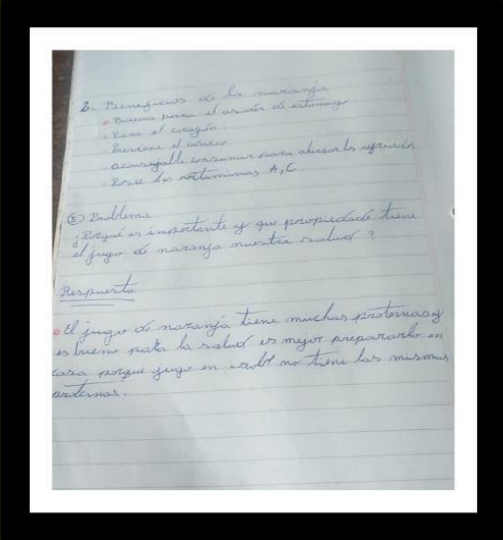 2. Beneficios de la naranja
• Buena para el asides de estomago
• Para el corazón.
• Previene el cancer
aconsegable consumir para aliviar los refriados.
• Posee las vitaminas A, C
③ Problema
¿Porqué es importante y que propiedade tiene
el jugo de naranja nuestra salud?
Respuesta
• El jugo de naranja tiene muchas proteinas y
es bueno para la salud es mejor prepararlo en
casa porque jugo en no tiene las mismas
proteinas.